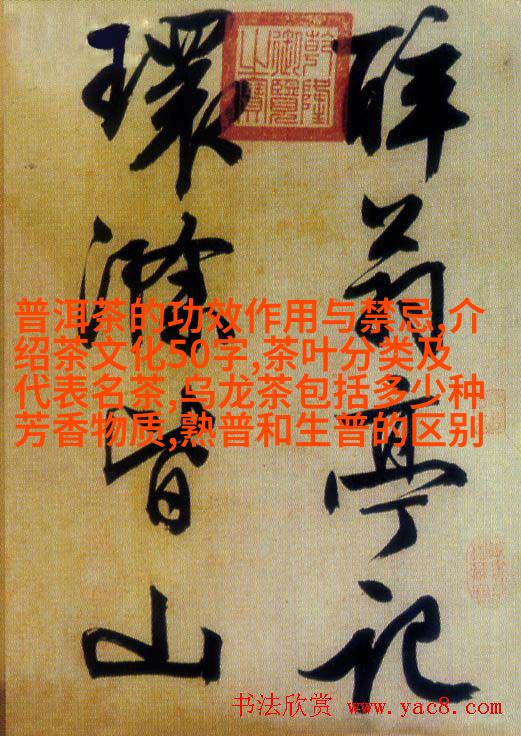 醉翁亭記
環滁皆山
乾隆
御覽
之寶
普洱茶的功效作用与禁忌,介
绍茶文化50字,茶叶分类及
代表名茶,乌龙茶包括多少种
芳香物质,熟普和生普的区别
书法欣赏 www.yac8.com